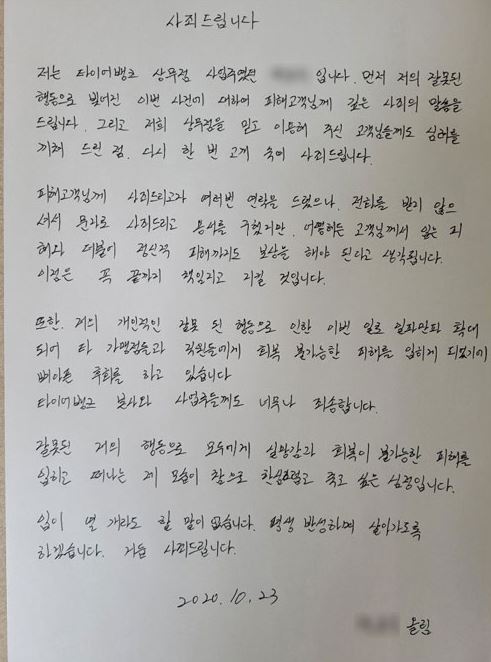 사죄드립니다
저는 타이어뱅크 상무점 사업주였던 입니다. 먼저 저의 잘못된
행동으로 빚어진 이번 사건에 대하여 피해고객님께 깊은 사죄의 말씀을
드립니다. 그리고 저희 상무점을 믿고 이용해 주신 고객님들께도 심려를
끼쳐 드린 점. 다시 한 번 고개 숙여 사죄드립니다.
피해고객님께 사죄드리고자 여러번 연락을 드렸으나. 전화를 받지 않으
셔서 문자로 사죄드리고 용서를 구했지만. 어떻게든 고객님께서 입은 피
해와 더불어 정신적 피해까지도 보상을 해야 된다고 생각됩니다.
이점은 꼭 끝까지 책임지고 지킬 것입니다.
또한. 저의 개인적인 잘못 된 행동으로 인한 이번 일로 일파만파 확대
되어 타 가맹점들과 직원들에게 회복 불가능한 피해를 입히게 되었기에
뼈아픈 후회를 하고 있습니다
타이어뱅크 본사와 사업주들께도 너무나 죄송합니다.
잘못된 저의 행동으로 모두에게 실망감과 회복이 불가능한 피해를
입히고 떠나는 제 모습이 참으로 한심스럽고 죽고 싶은 심정입니다.
입이 열 개라도 할 말이 없습니다. 평생 반성하며 살아가도록
하겠습니다. 거듭 사죄드립니다.
2020.10.23
올림